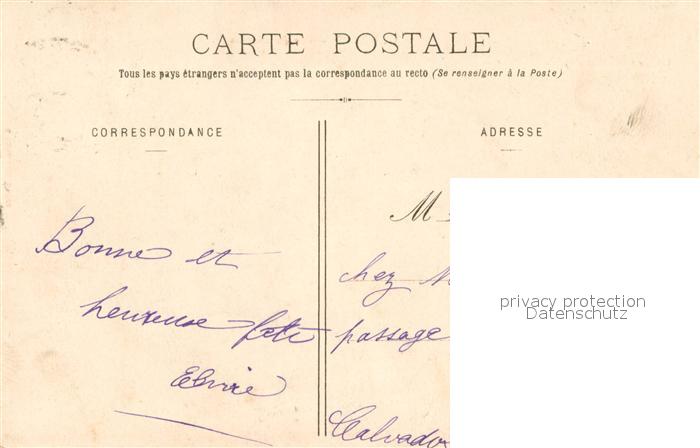 CARTE POSTALE
Tous les pays étrangers n'acceptent pas la correspondance au recto (Se renseigner à la Poste)
CORRESPONDANCE
ADRESSE
Bonne et
heureuse fête
Elvire
M
chez M
passage
Calvado
privacy protection
Datenschutz